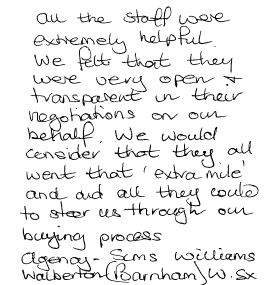 all the staff were
extremely helpful.
We felt that they
were very open &
transparent in their
negotiations on our
behalf. We would
consider that they all
went that 'extra mile'
and did all they could
to steer us through our
buying process
Agency - Sims Williams
Walberton (Barnham) W. Sx